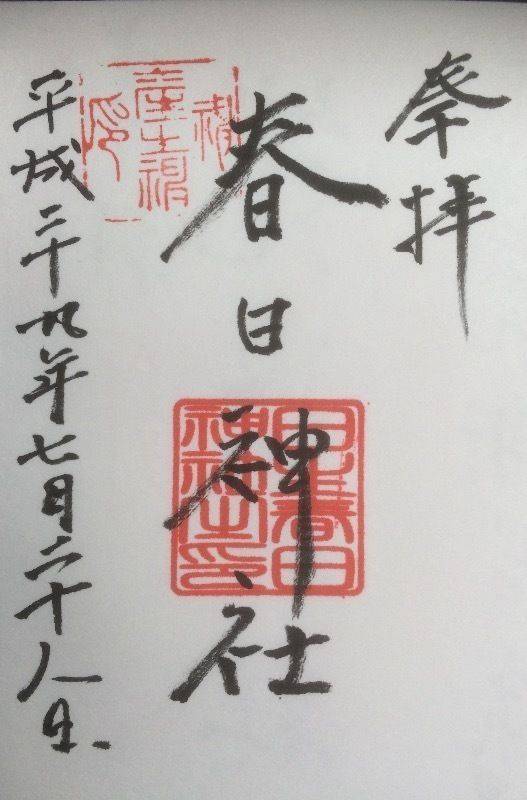 奉拝
春日神社
平成二十九年七月二十八日